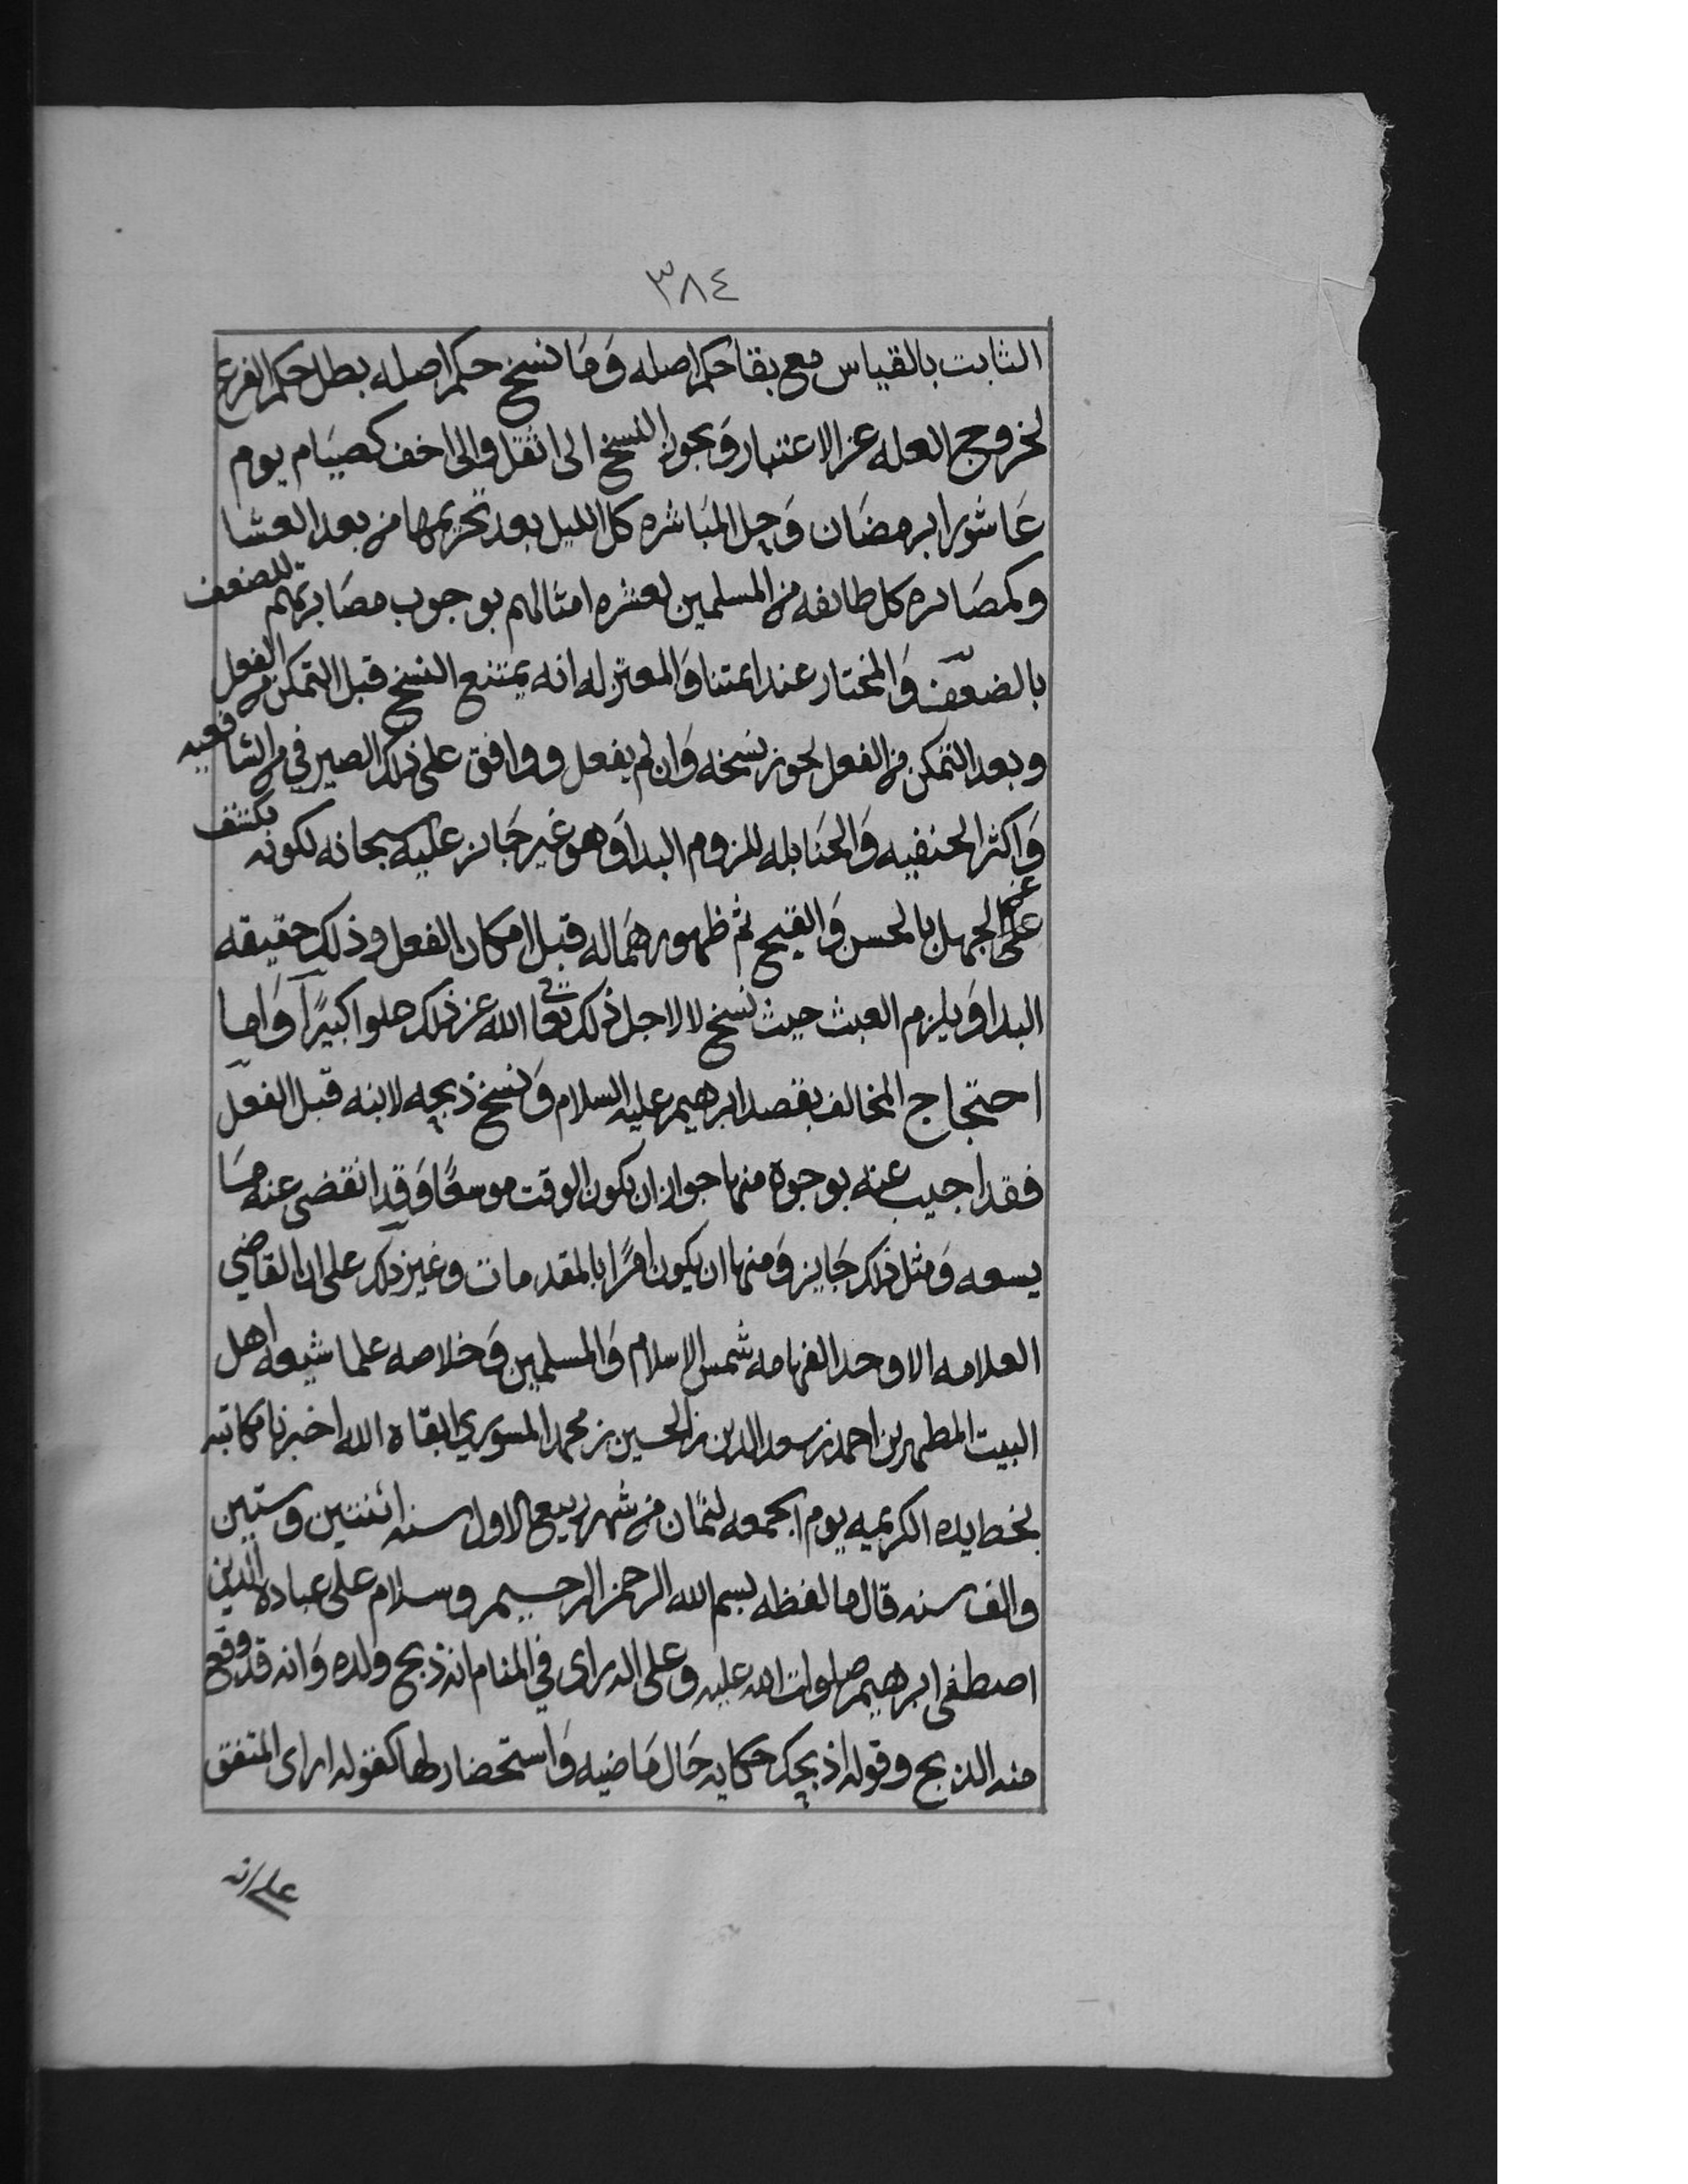 ٣٨٤
الثابت بالقياس مع بقا حكم اصله وَمَا نسخ حكم اصله بطل حكم الفرع
لخروج العله عن الاعتبار وَيجوز النسخ الى اثقل والى اخف كصيَام يوم
عَاشورا برمضَان وَحِل المبَاشره كل الليل بعد تحريمها من بعد العشا
وكمصَابره كل طائفه من المسلمين لعشره امثالهم بوجوب مصَابرتهم للضعف
بالضعف وَالمختار عند ائمتنا وَالمعتزله انه يمتنع النسخ قبل التمكن من الفعل
وبعد التمكن من الفعل يجوز نسخه وَان لم يفعل ووافق على ذلك الصيرفي من الشافعيه
وَاكثر الحنفيه وَالحنَابله للزوم البدا وَهو غير جَائز عليه سبحانه لكونه يكشف
عن على الجهل بالحسن وَالقبيح ثم ظهورهمَا له قبل امكان الفعل وذلك حقيقه
البدا وَيلزم العبث حيث نسخ لا لاجل ذلك تعا الله عن ذلك علوا كبيرًا وَاما
احتجاج المخالف بقصه ابرهيم عليه السلام وَنسخ ذبحه لابنه قبل الفعل
فقد اجيب عنه بوجوه منها جواز ان يكون الوقت موسعًا وَقد انقضى عنه مَا
يسعه وَمثل ذلك جَايز وَمنها ان يكون امرًا بالمقدمات وغير ذلك على ان القاضي
العلامه الاوحد الفهامه شمس الاسلام وَالمسلمين وَخلاصه علما شيعه اهل
البيت المطهرين احمد بن سعد الدين بن الحسين بن محمد المسوري ابقاه الله اخبرنا مكاتبه
بخط يده الكريمه يوم الجمعه لثمان من شهر ربيع الاول سنه اثنتين وستين
والف سنه قال ما لفظه بسم الله الرحمن الرحيم وسلام على عباده الذين
اصطفى ابرهيم صلوات الله عليه وعلى اله راى في المنام انه ذبح ولده وَانه قد وقع
منه الذبح وقوله اذبحك حكايه حَال مَاضيه وَاستحضار لها كقوله اراى المتفق